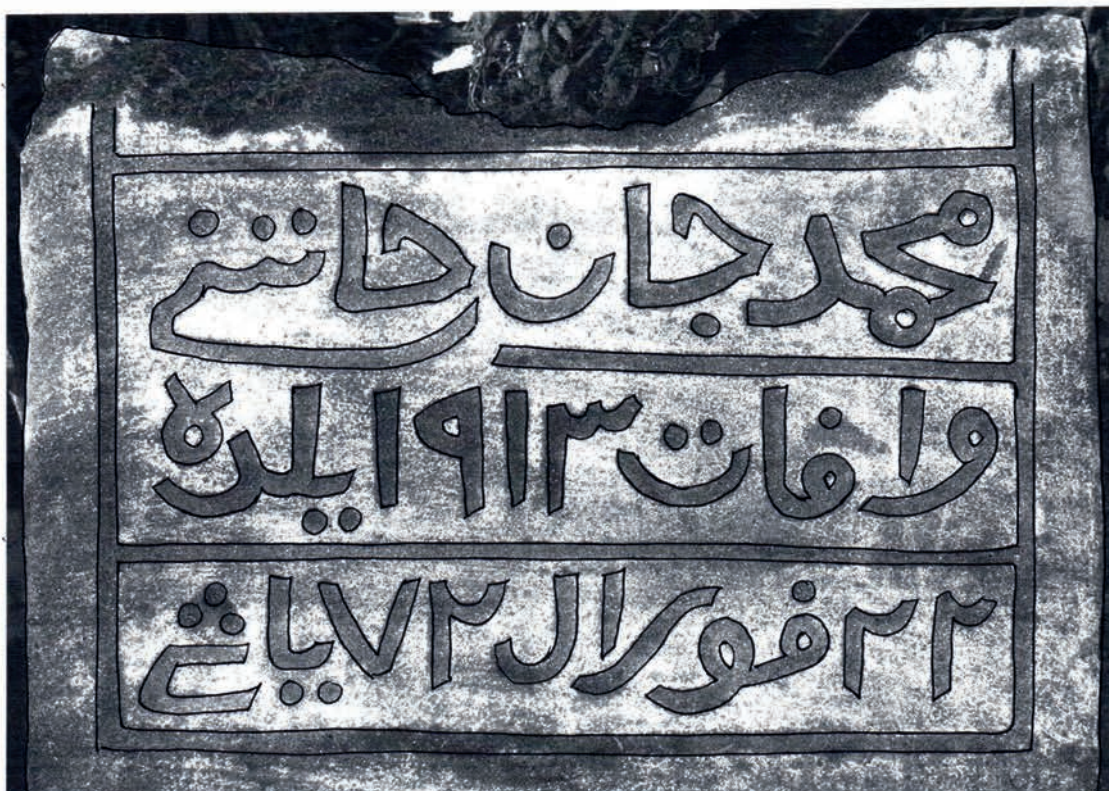 محمد جان حاتنے
وافات ١٩١٣ يلده
٢٢ فورال ٧٢ ياشے